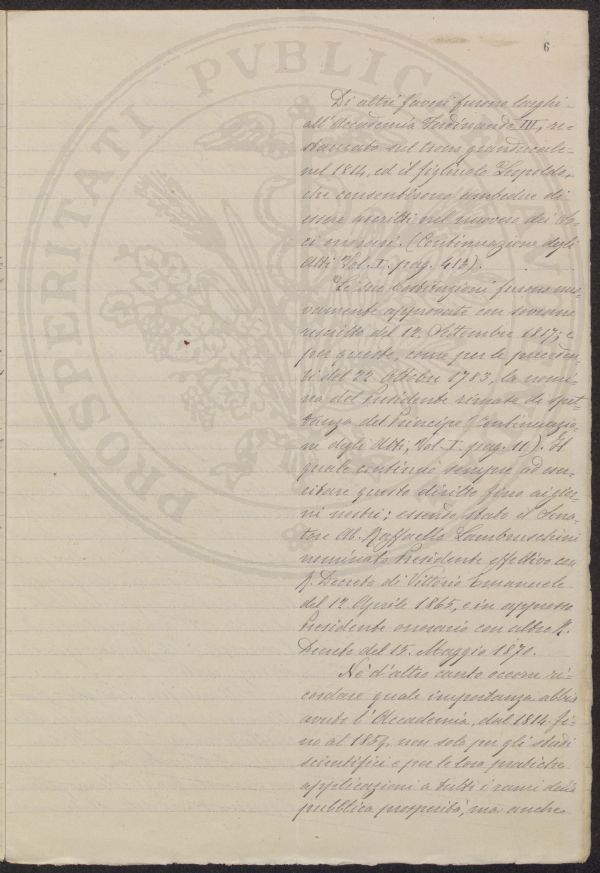 6
PROSPERITATI PVBLICAE
Di altri favori furono larghi
all'Accademia Ferdinando III, re-
staurato sul trono granducale
nel 1814, ed il figliuolo Leopoldo,
che consentirono ambedue di
essere ascritti nel novero dei So-
ci onorari. (Continuazione degli
Atti Vol. I. pag. 413).
Le sue Costituzioni furono nuo-
vamente approvate con sovrano
rescritto del 12. Settembre 1817; e
per queste, come per le preceden-
ti del 22. Ottobre 1783, la nomi-
na del Presidente rimase di spet-
tanza del Principe (Continuazio-
ne degli Atti, Vol. I. pag. 11). Il
quale continuò sempre ad eser-
citare questo diritto fino ai gior-
ni nostri; essendo stato il Sena-
tore Ab. Raffaello Lambruschini
nominato Presidente effettivo con
R. Decreto di Vittorio Emanuele
del 12. Aprile 1865, e in appresso
Presidente onorario con altro R.
Decreto del 15. Maggio 1870.
Nè d'altro canto occorre ri-
cordare quale importanza abbia
avuto l'Accademia, dal 1814 fi-
no al 1859, non solo per gli studi
scientifici e per le loro pratiche
applicazioni a tutti i rami della
pubblica prosperità, ma anche